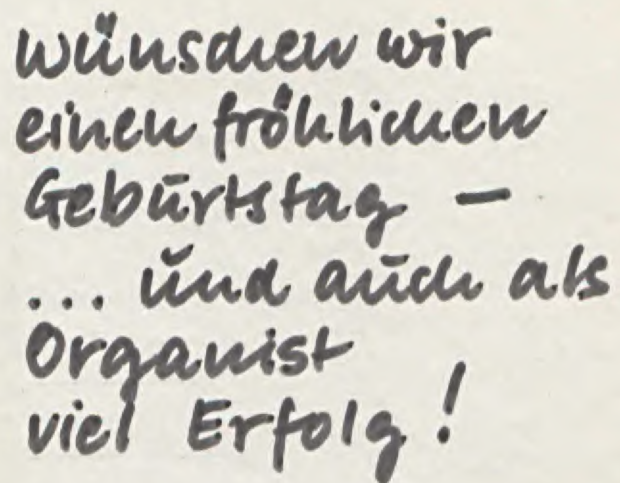 wünschen wir
einen fröhlichen
Geburtstag –
... und auch als
Organist
viel Erfolg!